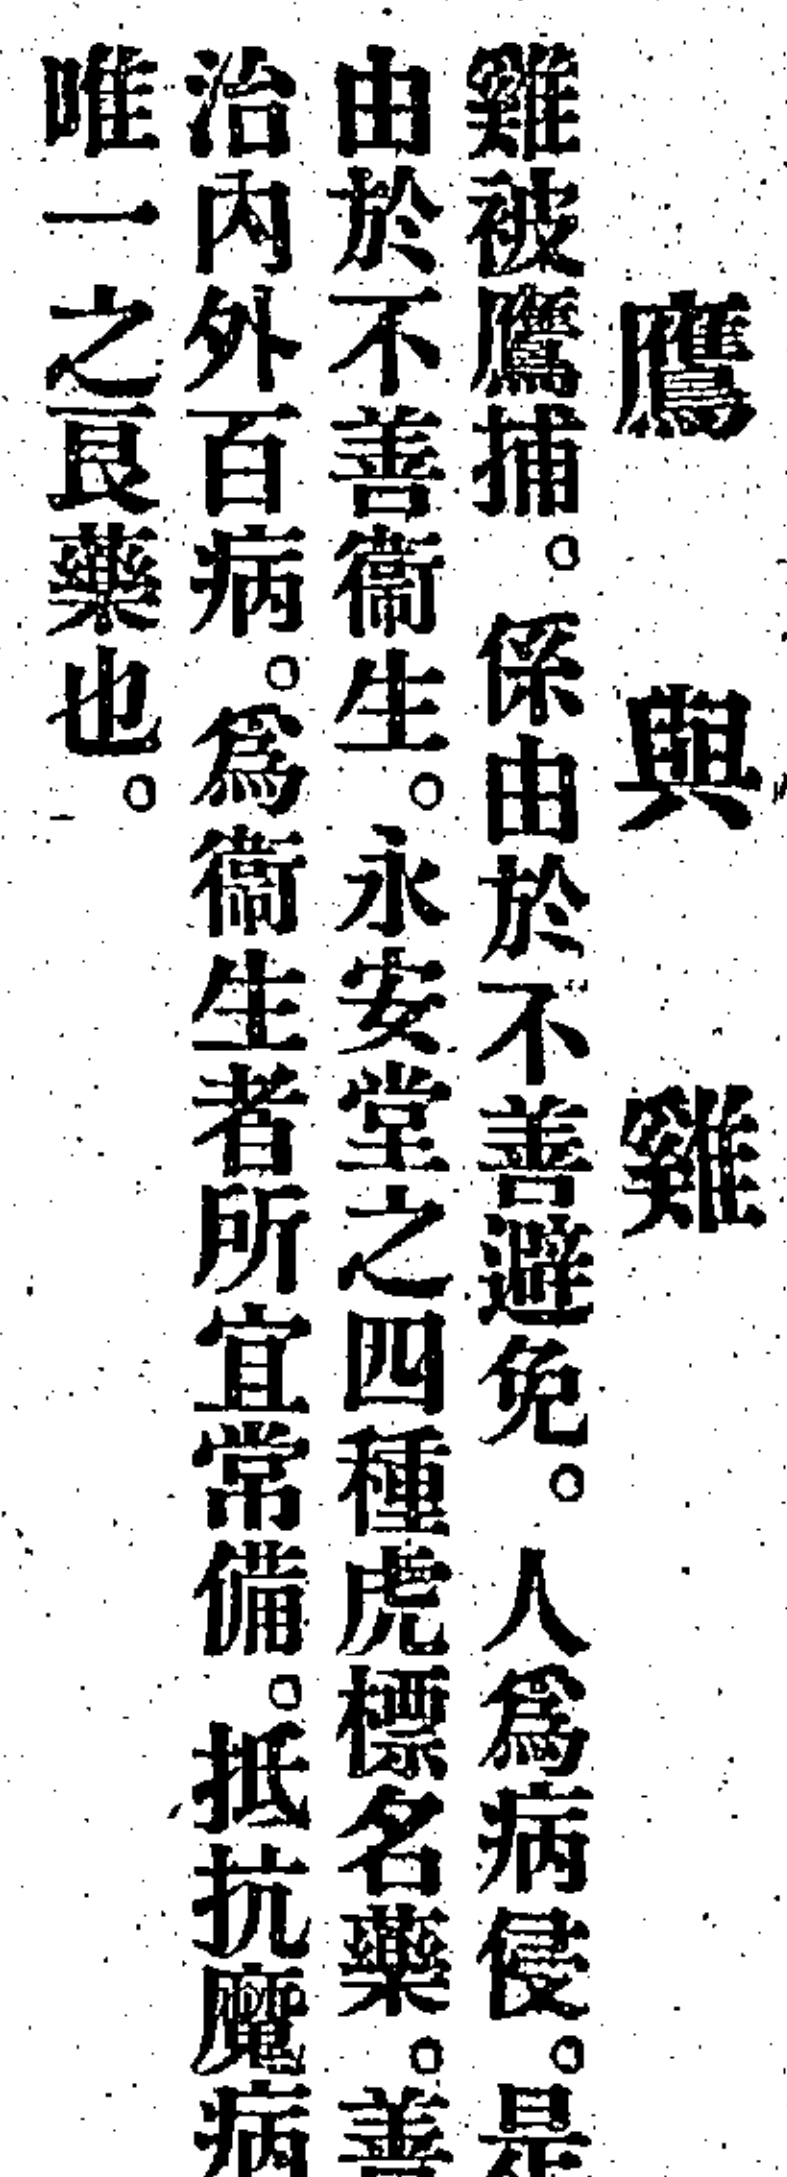 鷹與雞
雞被鷹捕。係由於不善避免。人爲病侵。是
由於不善衞生。永安堂之四種虎標名藥。善
治內外百病。爲衞生者所宜常備。抵抗魔病
唯一之良藥也。